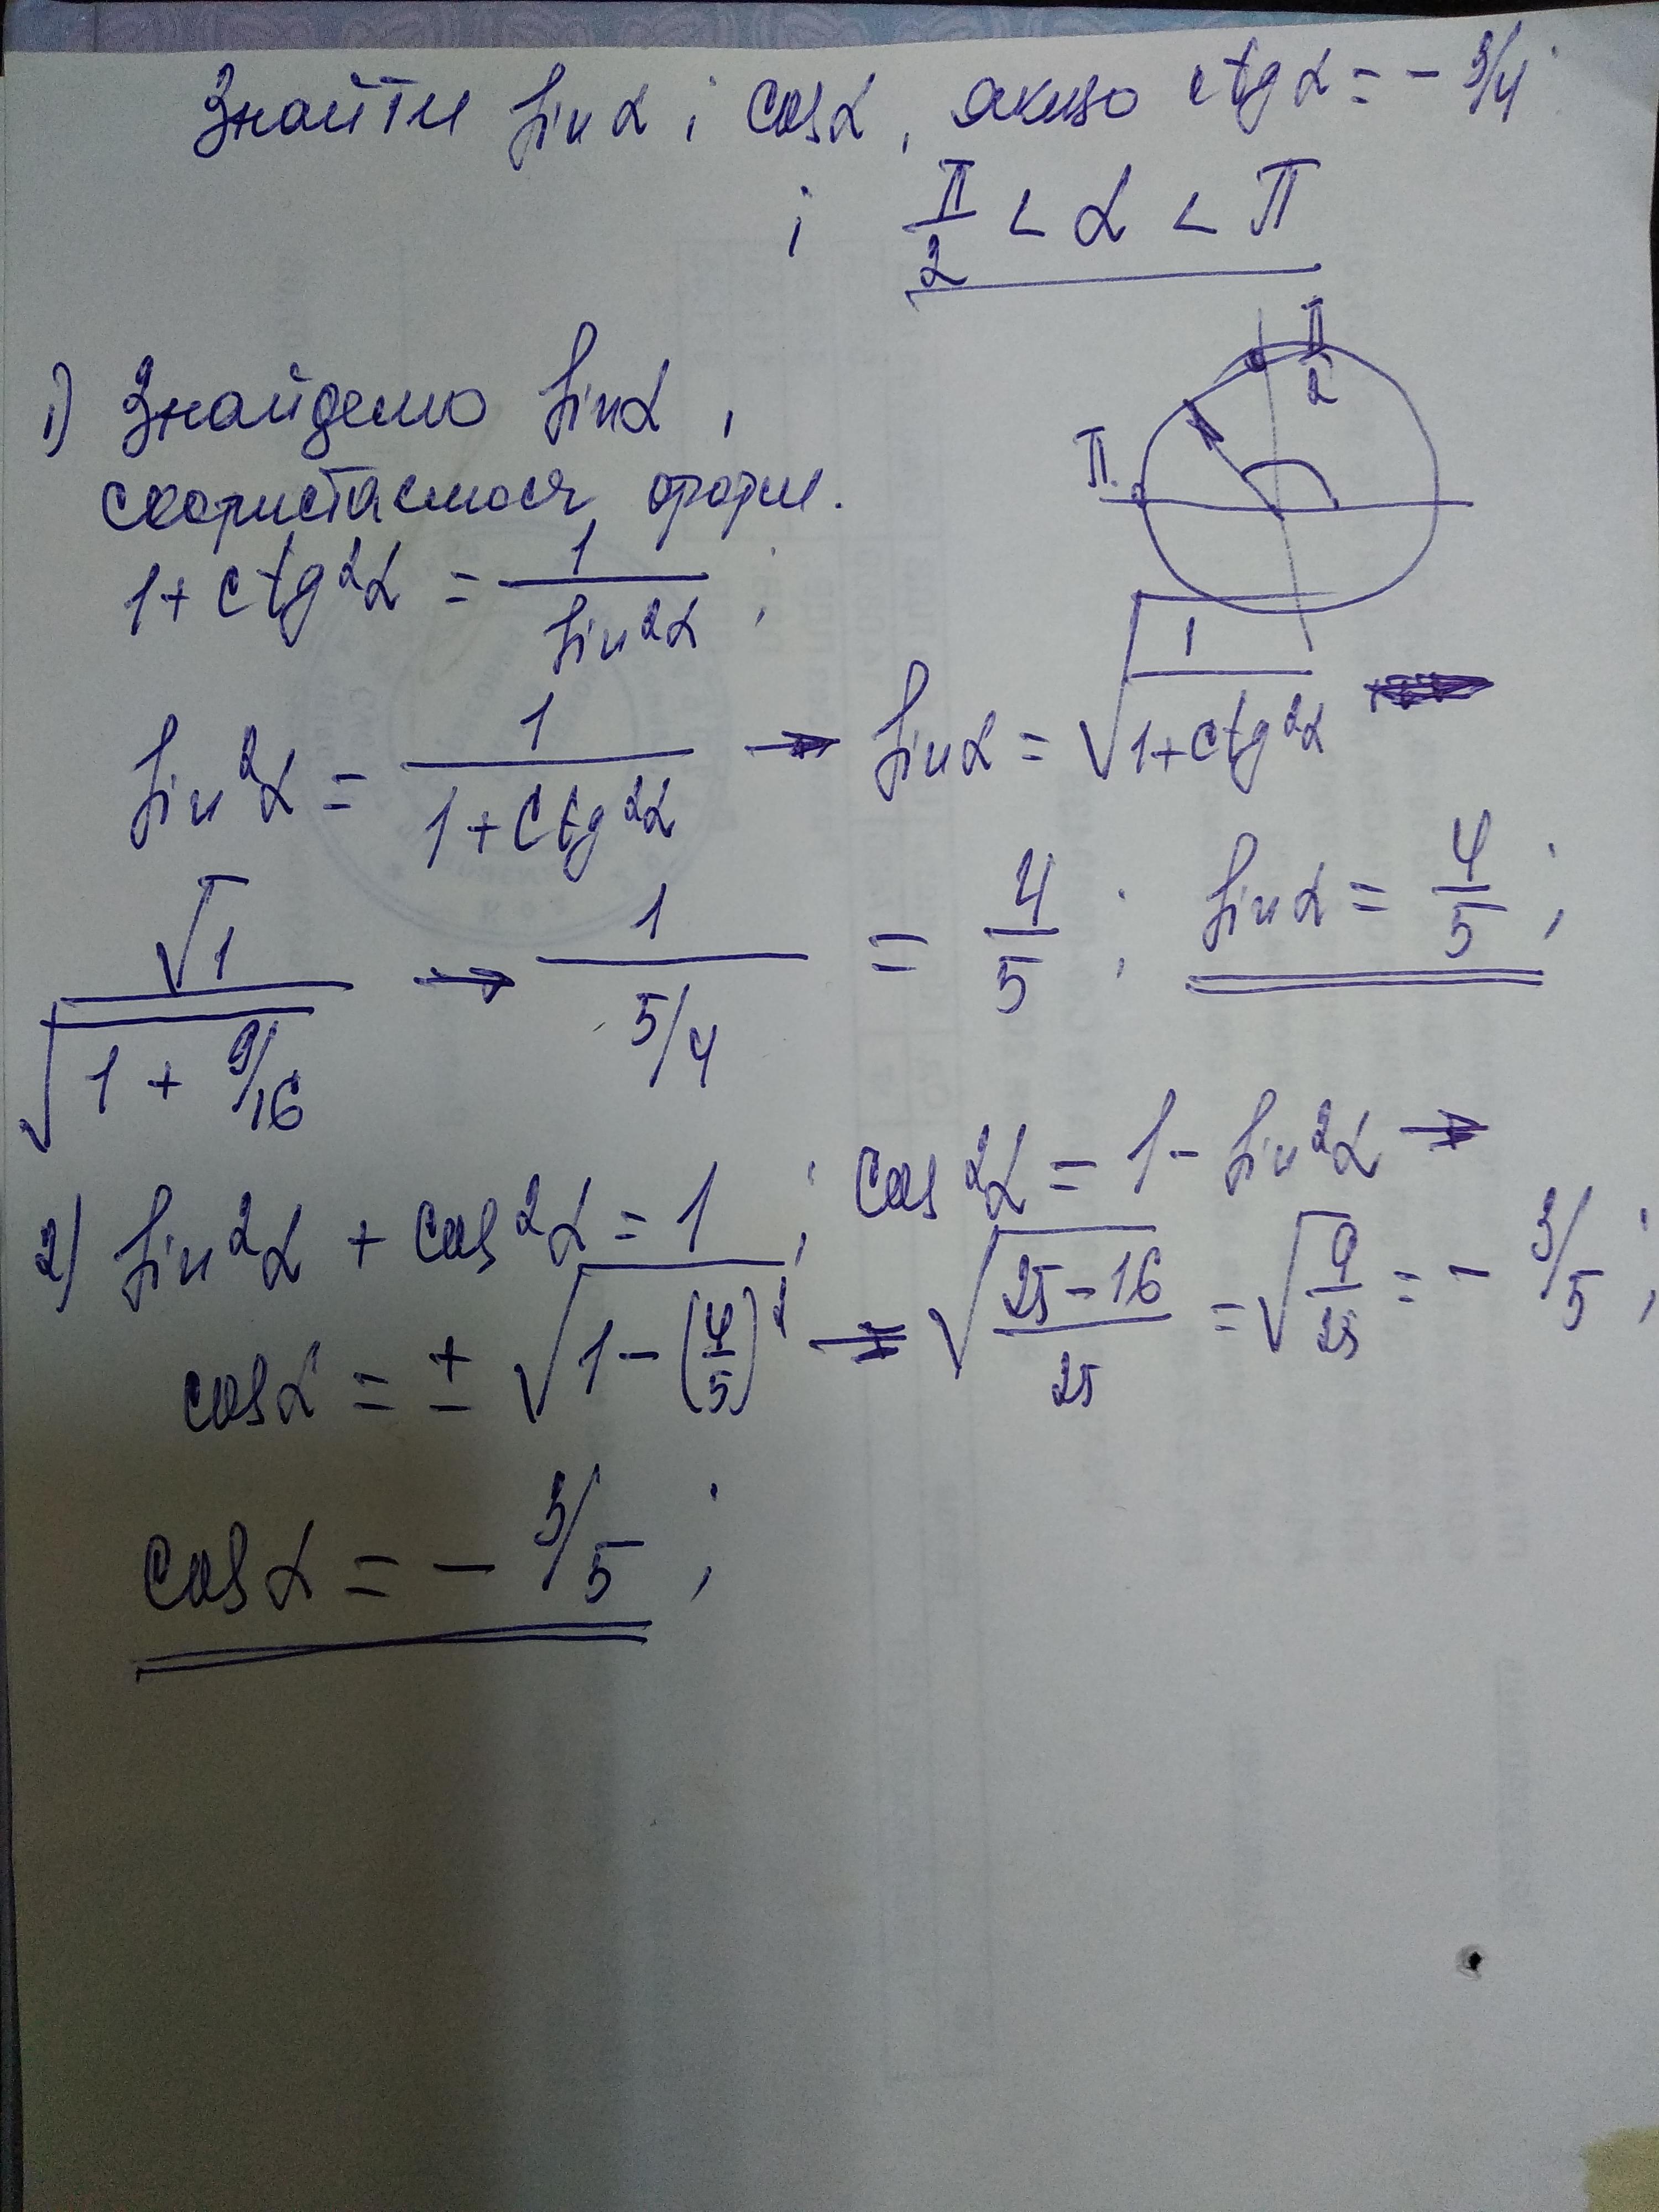 Знайти sin α і cos α, якщо ctg α = - 3/4
і π/2 < α < π
π/2
π
1) Знайдемо sin α,
скористаємося форм.
1 + ctg²α = 1/sin²α;
sin²α = 1/(1 + ctg²α) → sin α = √(1/(1 + ctg²α))
√1/√(1 + 9/16) → 1/(5/4) = 4/5; sin α = 4/5;
2) sin²α + cos²α = 1; cos²α = 1 - sin²α →
cos α = ± √(1 - (4/5)²) → √((25 - 16)/25) = √(9/25) = - 3/5;
cos α = - 3/5;